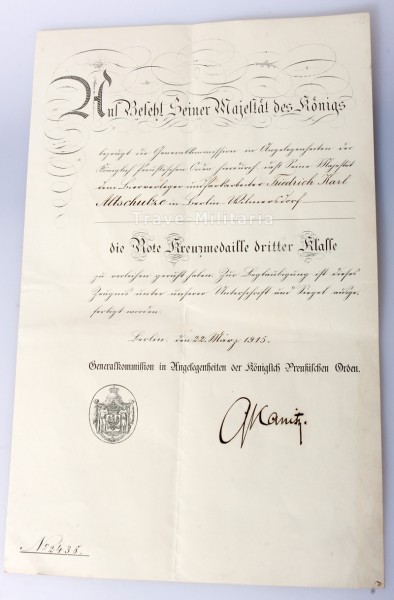 Auf Befehl Seiner Majestät des Königs
bezeugt die Generalkommission in Angelegenheiten der
Königlich Preußischen Orden hierdurch, daß Seine Majestät
dem Friedrich Karl
Altschulze in Berlin-Wilmersdorf
Trave-Militaria
die Rote Kreuzmedaille dritter Klasse
zu verleihen geruht haben. Zur Beglaubigung ist dieses
Zeugnis unter unserer Unterschrift und Siegel ausge-
fertigt worden.
Berlin, den 22. März 1915.
Generalkommission in Angelegenheiten der Königlich Preußischen Orden.
Kanitz.
No 2435.